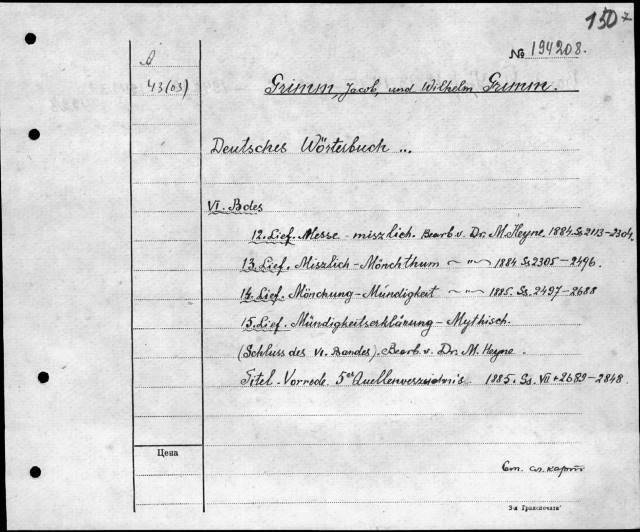 150
№ 194208.
A
43(03)
Grimm, Jacob, und Wilhelm Grimm.
Deutsches Wörterbuch ...
VI. Bdes
12. Lief. Messe - miszlich. Bearb. v. Dr. M. Heyne 1884. Ss. 2113-2304.
13. Lief. Miszlich - Mönchthum ~ "~ 1884 Ss. 2305-2496.
14. Lief. Mönchung - Mündigkeit ~ "~ 1885. Ss. 2497-2688
15. Lief. Mündigkeitserklärung - Mythisch.
(Schluss des VI. Bandes). Bearb. v. Dr. M. Heyne.
Titel - Vorrede. 5er Quellenverzeichnis 1885. Ss. VII + 2689-2848.
Цена
См. сл. карт
3-я Гранпечати